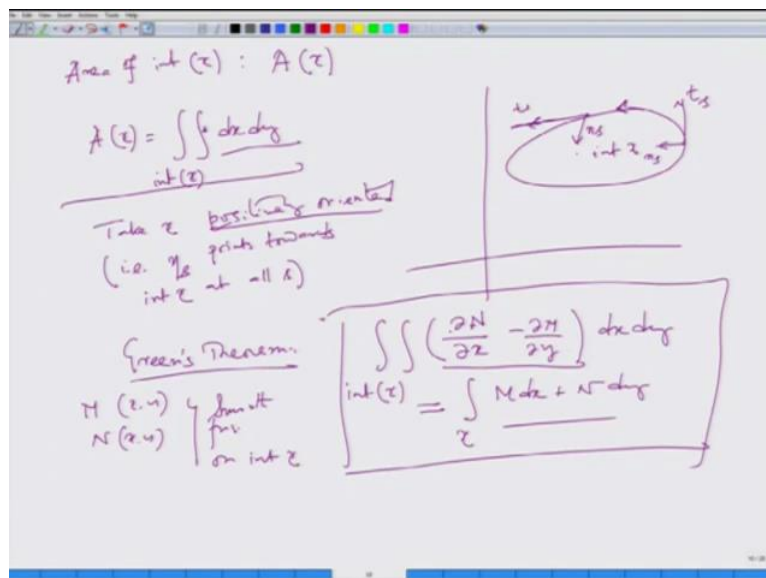 Area of int (τ) : A(τ)
A(τ) = ∫∫ dx dy
int(τ)
Take τ positively oriented
(i.e. ηs points towards
int τ at all s)
ts
ns
int τ
ns
Green's Theorem.
M (x, y)
N (x, y)
smooth
fns.
on int τ
∫∫ (∂N/∂x - ∂M/∂y) dx dy
int(τ)
= ∫ M dx + N dy
τ